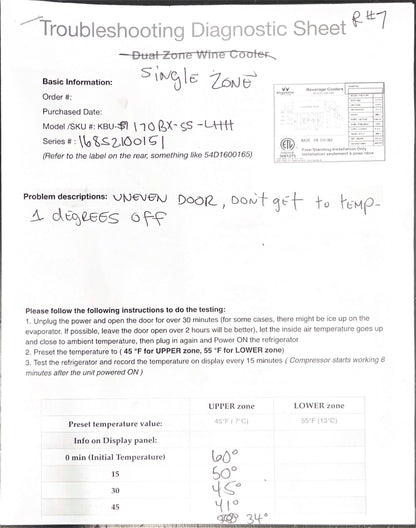 Troubleshooting Diagnostic Sheet R#7
Dual Zone Wine Cooler
SINGLE ZONE
Basic Information:
Order #:
Purchased Date:
Model /SKU #: KBU-170BX-SS-LHH
Series #: 16852100151
(Refer to the label on the rear, something like 54D1600165)
Beverage Coolers
Free-Standing Installation Only
Problem descriptions: UNEVEN DOOR, DON'T GET TO TEMP-
1 DEGREES OFF
Please follow the following instructions to do the testing:
1. Unplug the power and open the door for over 30 minutes (for some cases, there might be ice up on the
evaporator. If possible, leave the door open over 2 hours will be better), let the inside air temperature goes up
and close to ambient temperature, then plug in again and Power ON the refrigerator
2. Preset the temperature to ( 45 °F for UPPER zone, 55 °F for LOWER zone)
3. Test the refrigerator and record the temperature on display every 15 minutes ( Compressor starts working 6
minutes after the unit powered ON )
UPPER zone LOWER zone
Preset temperature value: 45°F ( 7°C) 55°F (13°C)
Info on Display panel:
0 min (Initial Temperature) 60°
15 50°
30 45°
45 41°
34°